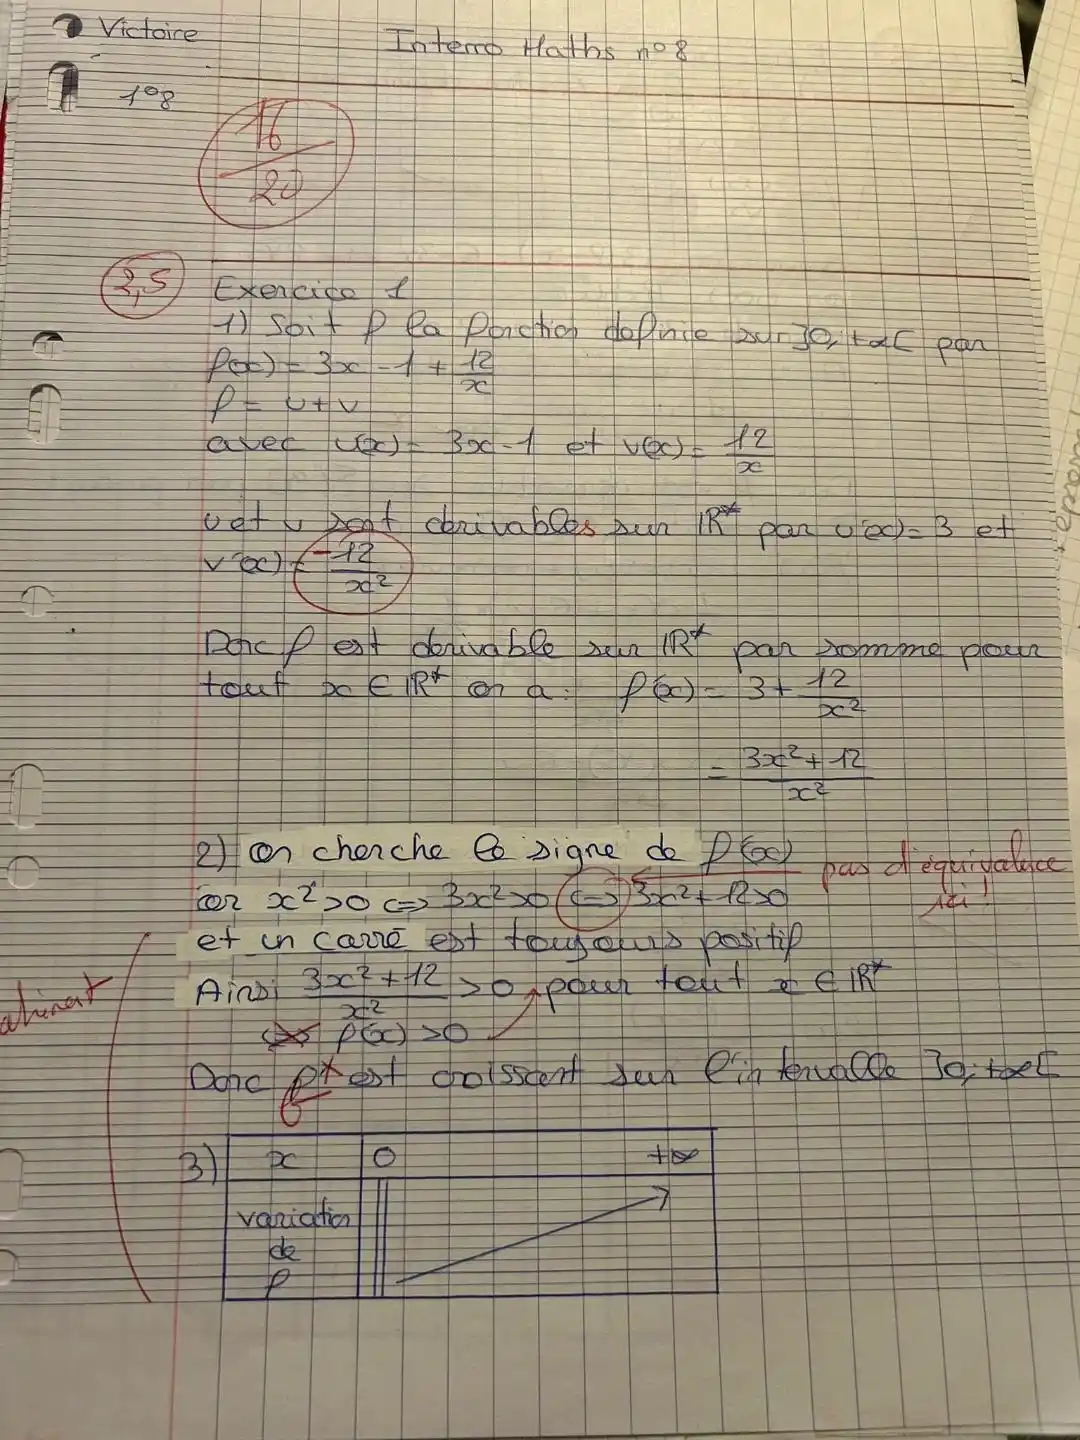 Victoire
Interro Maths n°8
1°8
16
20
2,5
Exercice 1
1) Soit f la fonction definie sur ]0,+∞[ par
f(x) = 3x - 1 + 12/x
f = u+v
avec u(x) = 3x-1 et v(x) = 12/x
u et v sont derivables sur IR* par u'(x) = 3 et
v'(x) = -12/x²
Donc f est derivable sur IR* par somme pour
tout x ∈ IR* on a : f'(x) = 3 + 12/x²
= 3x²+12/x²
2) on cherche le signe de f'(x)
pas d'équivalence
ici !
or x²>0 <=> 3x²>0 <=> 3x²+12>0
et un carré est toujours positif
Ainsi 3x²+12/x² >0 pour tout x ∈ IR*
f'(x) >0
Donc f est croissant sur l'intervalle ]0;+∞[
f
3) x 0 +∞
variation
de
f